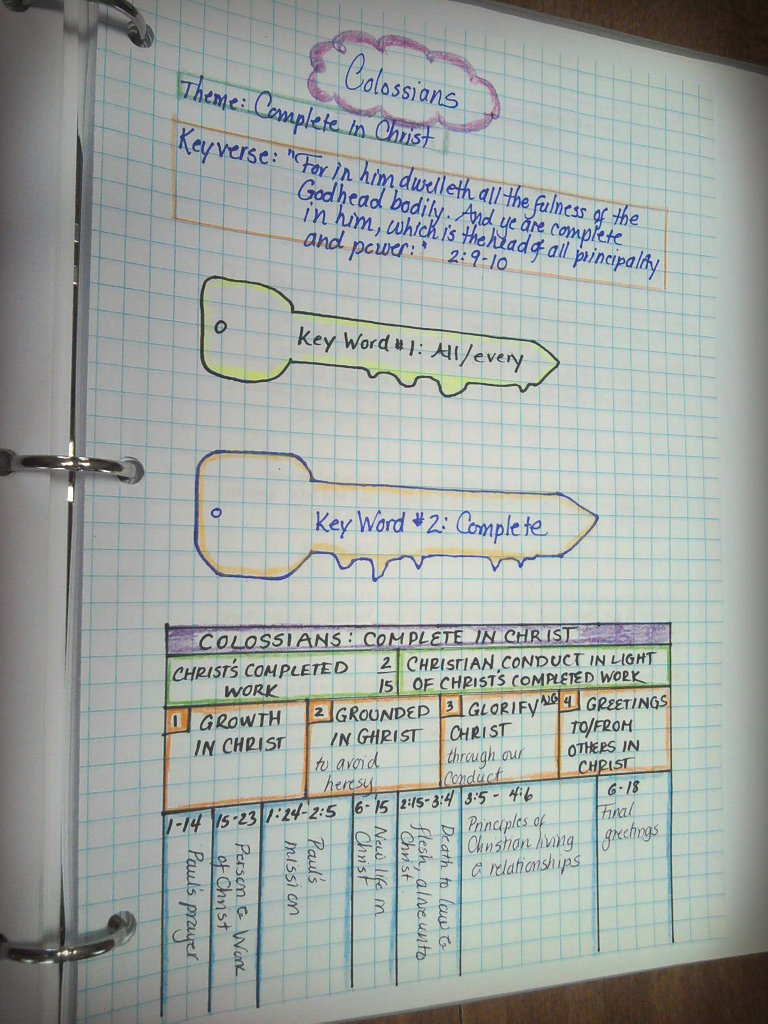 Colossians
Theme: Complete in Christ
Key verse: "For in him dwelleth all the fulness of the
Godhead bodily. And ye are complete
in him, which is the head of all principality
and power:" 2:9-10
Key Word #1: All/every
Key Word #2: Complete
COLOSSIANS: COMPLETE IN CHRIST
CHRIST'S COMPLETED
WORK
2
15
CHRISTIAN CONDUCT IN LIGHT
OF CHRIST'S COMPLETED WORK
1 GROWTH
IN CHRIST
2 GROUNDED
IN CHRIST
to avoid
heresy
3 GLORIFYING
CHRIST
through our
conduct
4 GREETINGS
TO/FROM
OTHERS IN
CHRIST
1-14
Paul's prayer
15-23
Person & Work
of Christ
1:24-2:5
Paul's
mission
6-15
New life in
Christ
2:15-3:4
Death to law &
flesh, alive unto
Christ
3:5 - 4:6
Principles of
Christian living
& relationships
6-18
Final
greetings